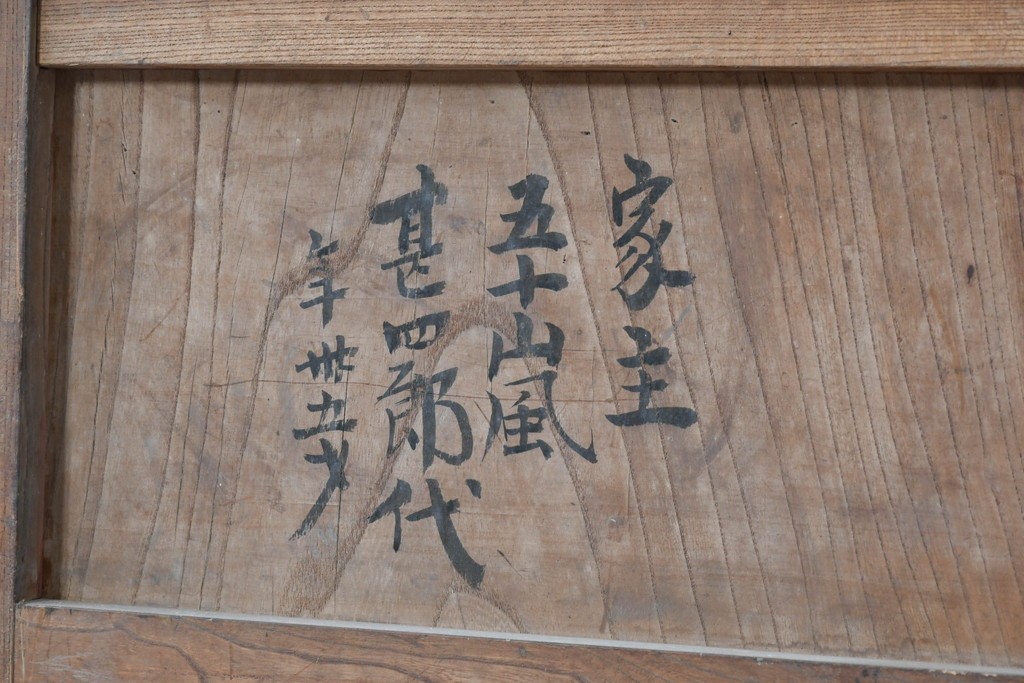 家主
五十嵐
甚四郎代
年卅五才